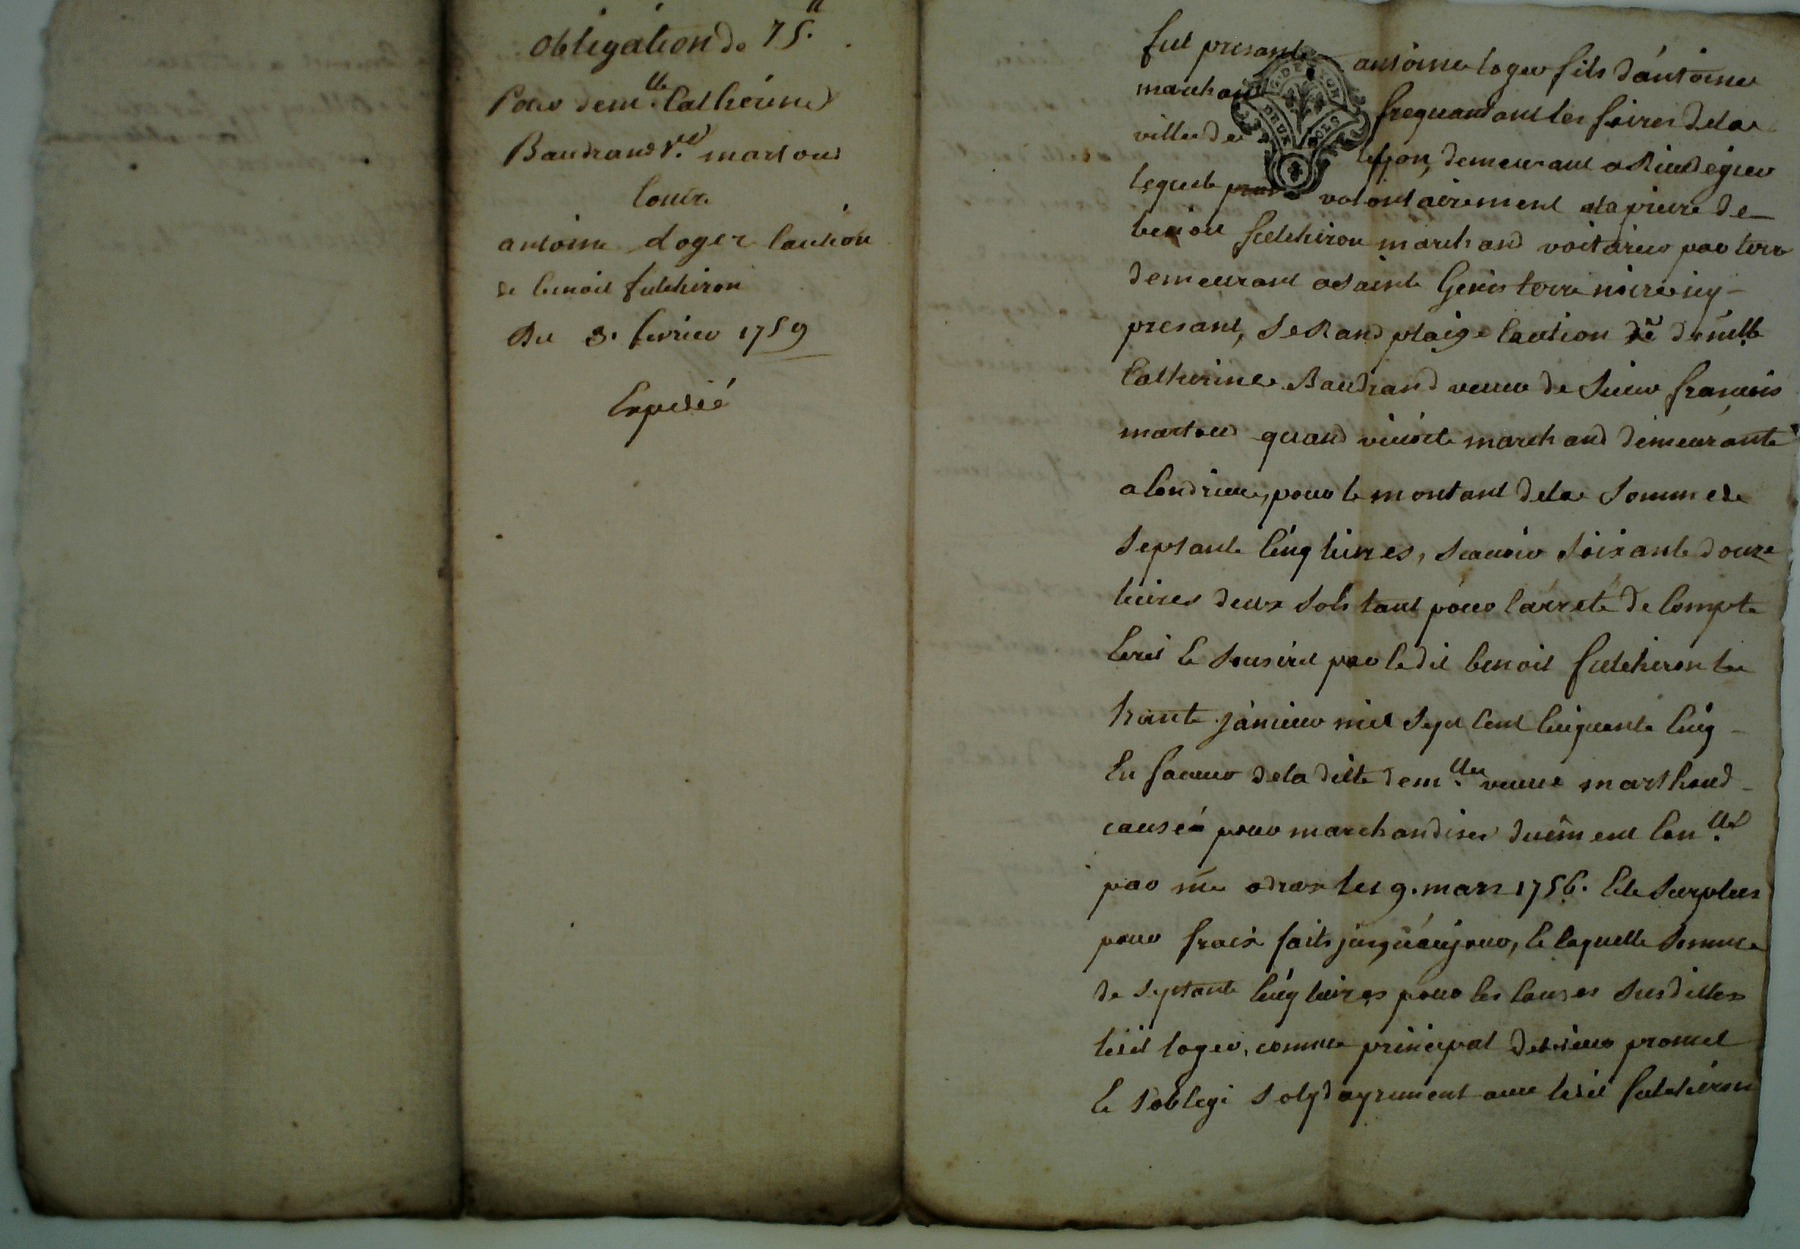 obligation de 75.ll
Pour dem.lle Catherine
Baudrand v.ve martoud
Contre
antoine loger Caution
de benoit fulchiron
Du 3. fevrier 1759
Expedié
fut presant antoine loger fils d'antoine
marchand frequantant les foires de la
ville de lyon, demeurant a Rivedegier
lequel volontairement a la priere de
benoit fulchiron marchand voiturier par terre
demeurant a Saint Genis terre noire icy
presant, se Rand plaige Caution de d.mlle
Catherine Baudrand veuve de Sieur francois
martoud quand vivoit marchand demeurante
a Condrieu, pour le montant de la Somme de
Septante Cinq livres, Scavoir Soixante douze
livres deux Sols tant pour l'arreté de Compte
Ecrit et Souscrit par le dit benoit fulchiron le
trante janvier mil Sept Cent Cinquante Cinq
En faveur de la ditte dem.lle veuve marthoud
causé pour marchandises duëment Con.llé
par me les 9. mars 1756. Et le Surplus
pour fraix faits jusqu'a ce jour, et laquelle Somme
de Septante Cinq livres pour les Causes Susdittes
ledit loger, comme principal debiteur promet
et s'oblige Solydayrement avec ledit fulchiron